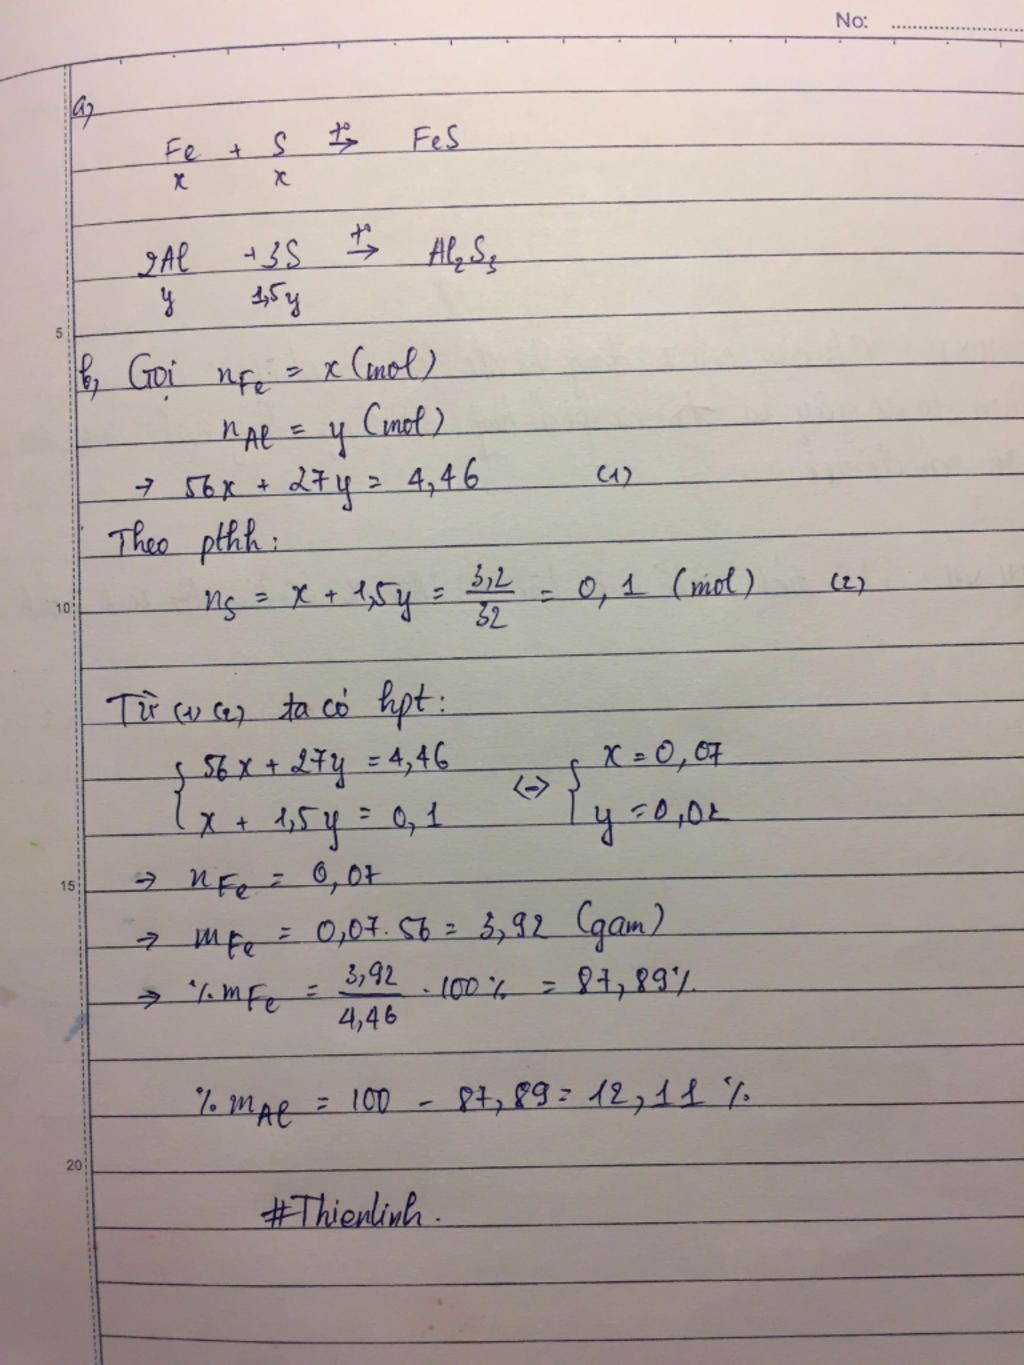 No: ....................
a,
Fe + S t° → FeS
x x
2Al + 3S t° → Al₂S₃
y 1,5y
5
b, Gọi nFe = x (mol)
nAl = y (mol)
→ 56x + 27y = 4,46 (1)
Theo pthh:
10
nS = x + 1,5y = 3,2/32 = 0,1 (mol) (2)
Từ (1) (2) ta có hpt:
{ 56x + 27y = 4,46 <=> { x = 0,07
x + 1,5y = 0,1 y = 0,02
15
→ nFe = 0,07
→ mFe = 0,07.56 = 3,92 (gam)
→ %mFe = 3,92/4,46 . 100% = 87,89%
%mAl = 100 - 87,89 = 12,11 %
20
#Thienlinh.